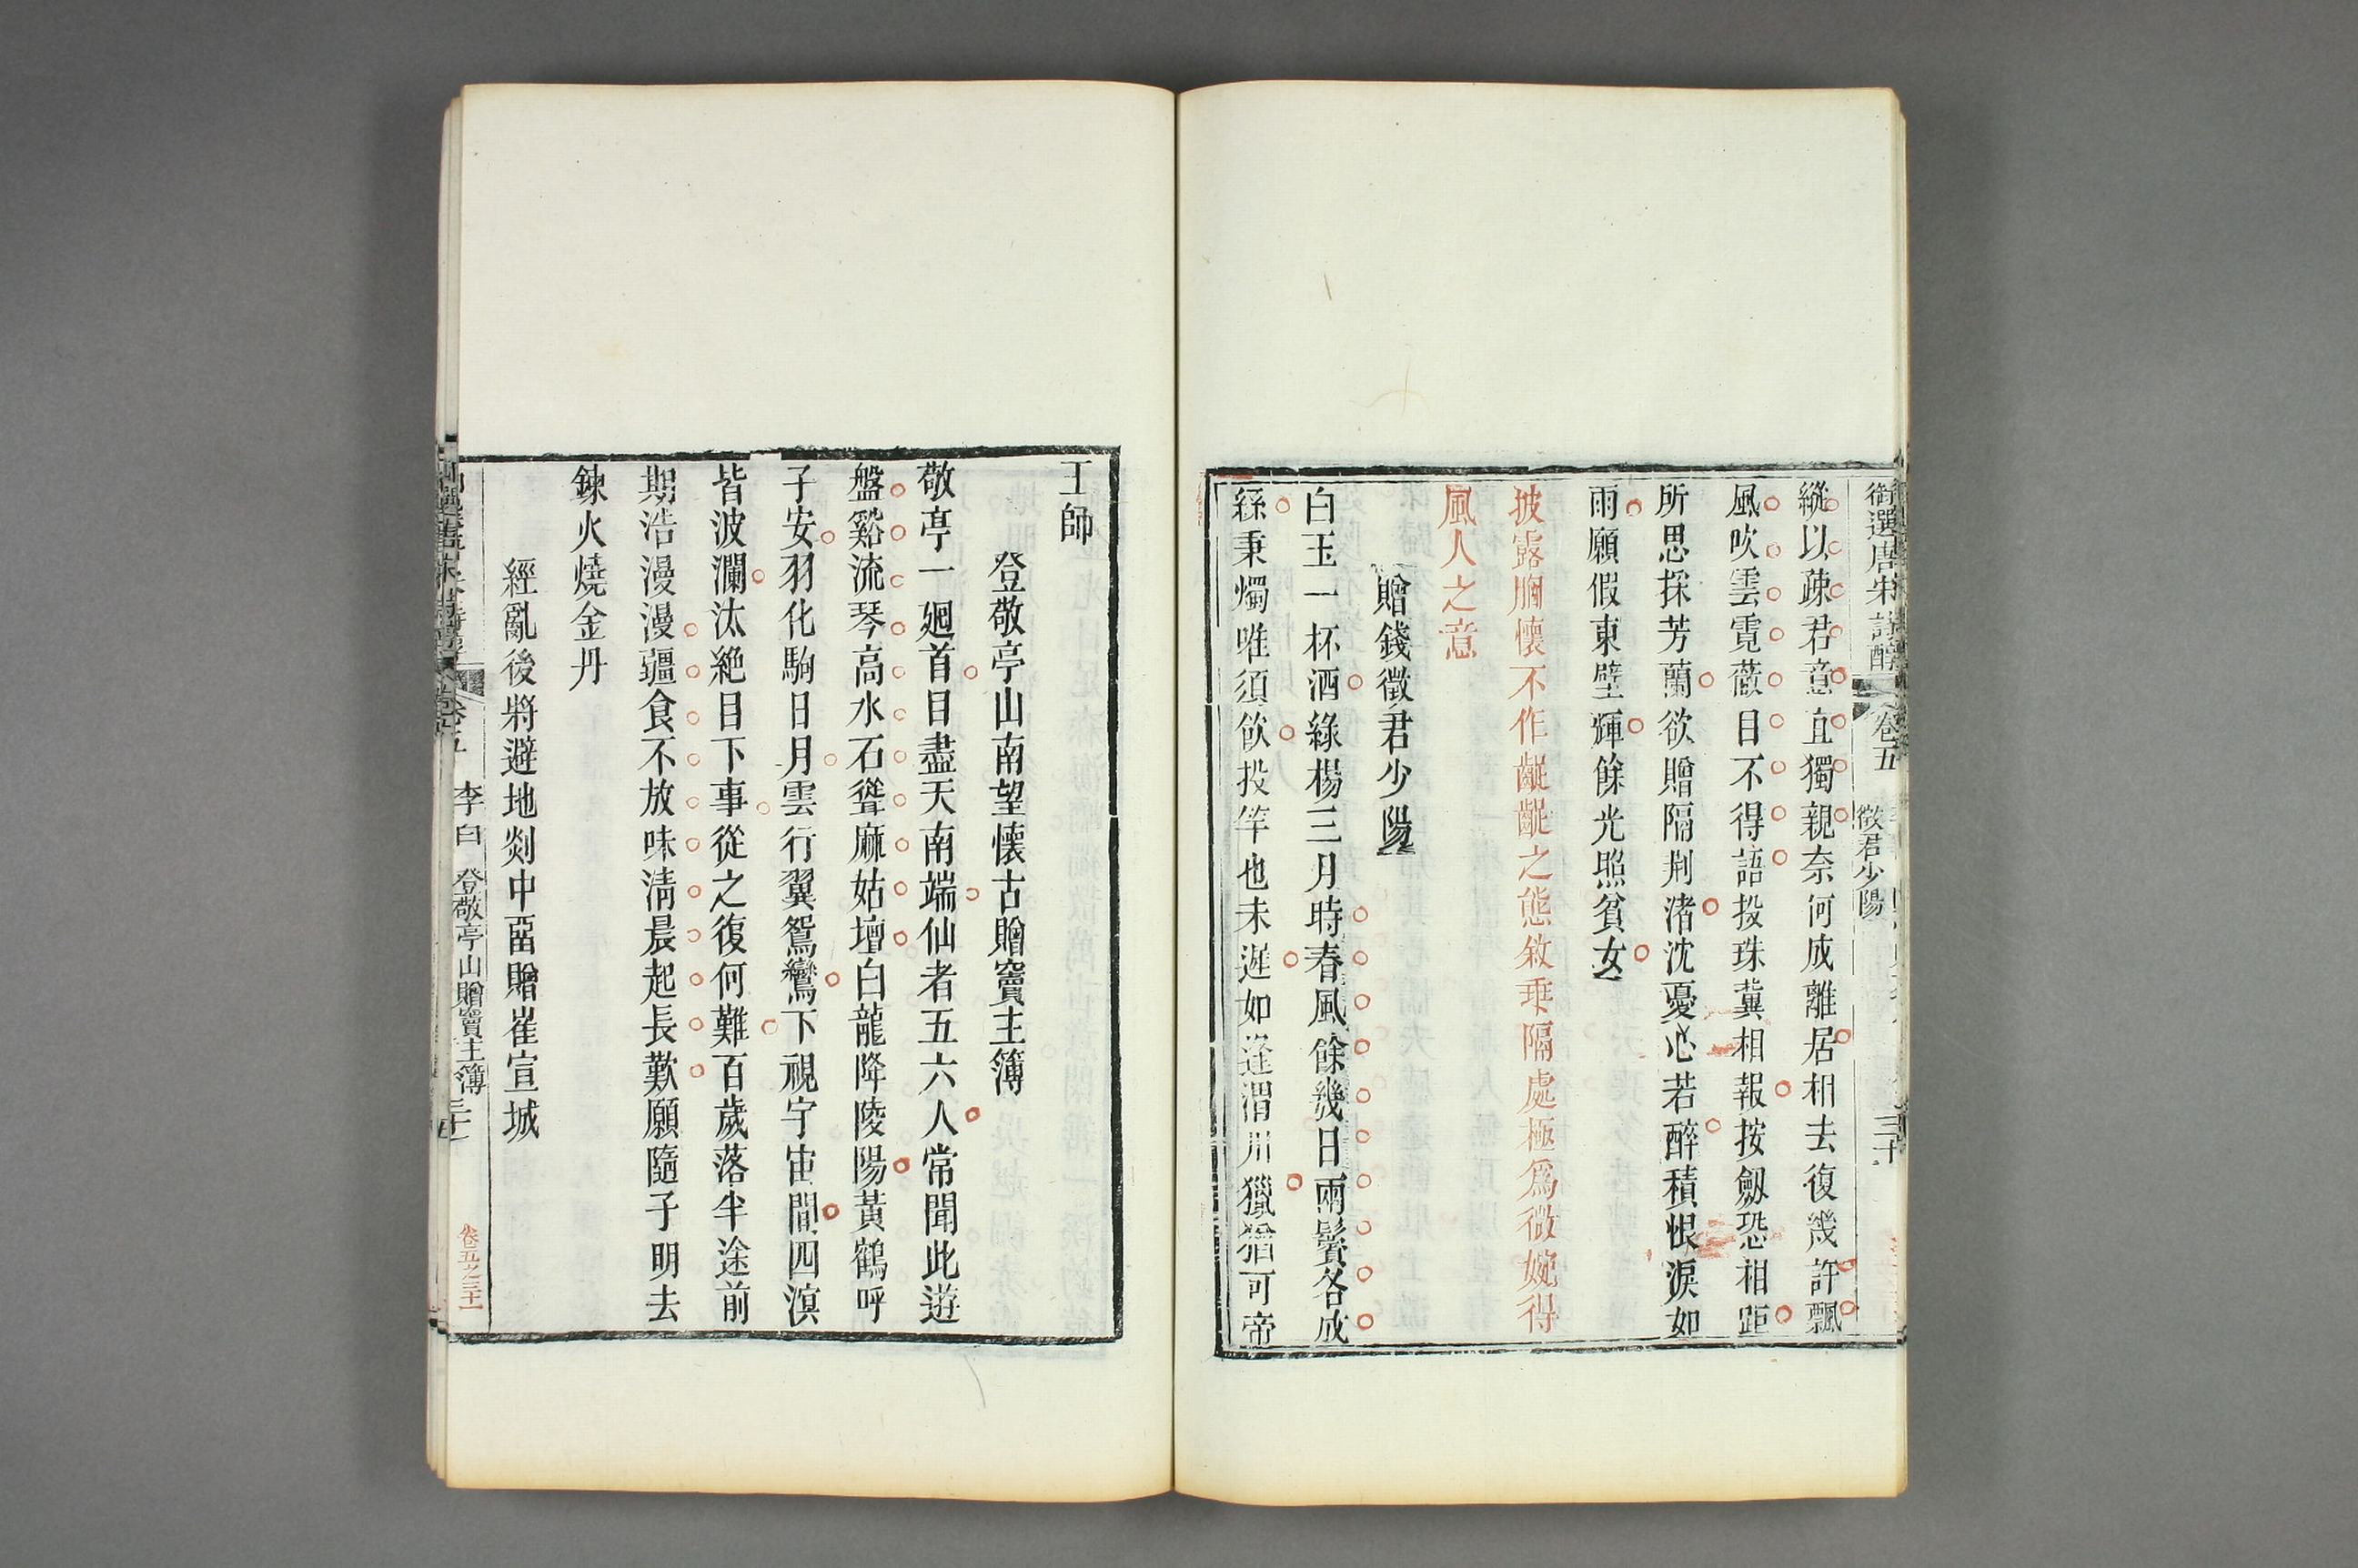 御選唐宋詩醇 卷五 徵君少陽 三十
縱以疎君意宜獨親奈何成離居相去復幾許飄
風吹雲霓蔽目不得語投珠冀相報按劒恐相距
所思採芳蘭欲贈隔荆渚沈憂心若醉積恨淚如
雨願假東壁輝餘光照貧女
披露胸懷不作齷齪之態敘乖隔處極為微婉得
風人之意
贈錢徵君少陽
白玉一杯酒綠楊三月時春風餘幾日兩鬢各成
絲秉燭唯須飲投竿也未遲如逢渭川獵猶可帝
王師
登敬亭山南望懷古贈竇主簿
敬亭一廻首目盡天南端仙者五六人常聞此遊
盤谿流琴高水石聳麻姑壇白龍降陵陽黃鶴呼
子安羽化騎日月雲行翼鴛鸞下視宇宙間四溟
皆波瀾汰絶目下事從之復何難百歲落半途前
期浩漫漫彊食不放味清晨起長歎願隨子明去
鍊火燒金丹
經亂後將避地剡中畱贈崔宣城
李白 登敬亭山贈竇主簿 三十一
卷五之三十一